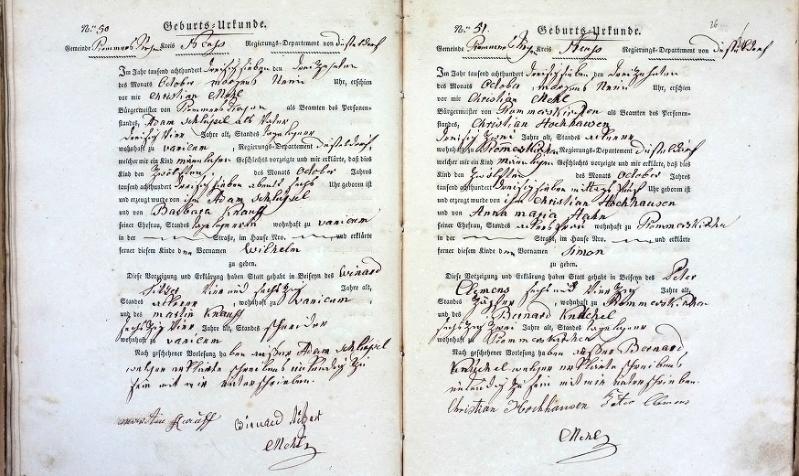 No 50
Geburts-Urkunde.
Gemeinde Kreis Neuss Regierungs-Departement von Düsseldorf
Im Jahr tausend achthundert dreißig sieben den dreizehnten
des Monats October morgens Neun Uhr, erschien
vor mir Christian Mehl
Bürgermeister von als Beamten des Personen-
standes, Adam Schlüssel als Vater
dreißig Vier Jahre alt, Standes Tagelöhner
wohnhaft zu , Regierungs-Departement Düsseldorf,
welcher mir ein Kind männlichen Geschlechts vorzeigte und mir erklärte, daß dies
Kind den zwölften des Monats October Jahres
tausend achthundert dreißig sieben abends sechs Uhr geboren ist
und erzeugt wurde von ihm Adam Schlüssel
und von Barbara Knauff
seiner Ehefrau, Standes wohnhaft zu
in der Straße, im Hause Nro. und erklärte
ferner diesem Kinde den Vornamen Wilhelm
zu geben.
Diese Vorzeigung und Erklärung haben Statt gehabt in Beiseyn des
Vier und sechszig Jahre alt,
Standes Ackerer , wohnhaft zu ,
und des Martin Knauff
sechszig Vier Jahre alt, Standes Schneider
wohnhaft zu
Nach geschehener Vorlesung haben außer Adam Schlüssel
welcher erklärte schreibens unkundig zu
sein mit mir unterschrieben.
Mehl
No 51.
Geburts-Urkunde.
26
Gemeinde Kreis Neuss Regierungs-Departement von Düsseldorf
Im Jahr tausend achthundert dreißig sieben den dreizehnten
des Monats October morgens Neun Uhr, erschien
vor mir Christian Mehl
Bürgermeister von Rommerskirchen als Beamten des Personen-
standes, Christian Hochhausen
dreißig zwei Jahre alt, Standes Ackerer
wohnhaft zu Rommerskirchen Regierungs-Departement Düsseldorf
welcher mir ein Kind männlichen Geschlechts vorzeigte und mir erklärte, daß dies
Kind den zwölften des Monats October Jahres
tausend achthundert dreißig sieben Uhr geboren ist
und erzeugt wurde von ihm Christian Hochhausen
und von Anna Maria Hahn
seiner Ehefrau, Standes wohnhaft zu Rommerskirchen
in der Straße, im Hause Nro. und erklärte
ferner diesem Kinde den Vornamen Simon
zu geben.
Diese Vorzeigung und Erklärung haben Statt gehabt in Beiseyn des Peter
Clemens sechs und Vierzig Jahre alt,
Standes , wohnhaft zu Rommerskirchen
und des Bernard Knüchel
sechszig zwei Jahre alt, Standes Tagelöhner
wohnhaft zu Rommerskirchen
Nach geschehener Vorlesung haben außer Bernard
Knüchel welcher erklärte schreibens
unkundig zu sein mit mir unterschrieben.
Christian Hochhausen Peter Clemens
Mehl